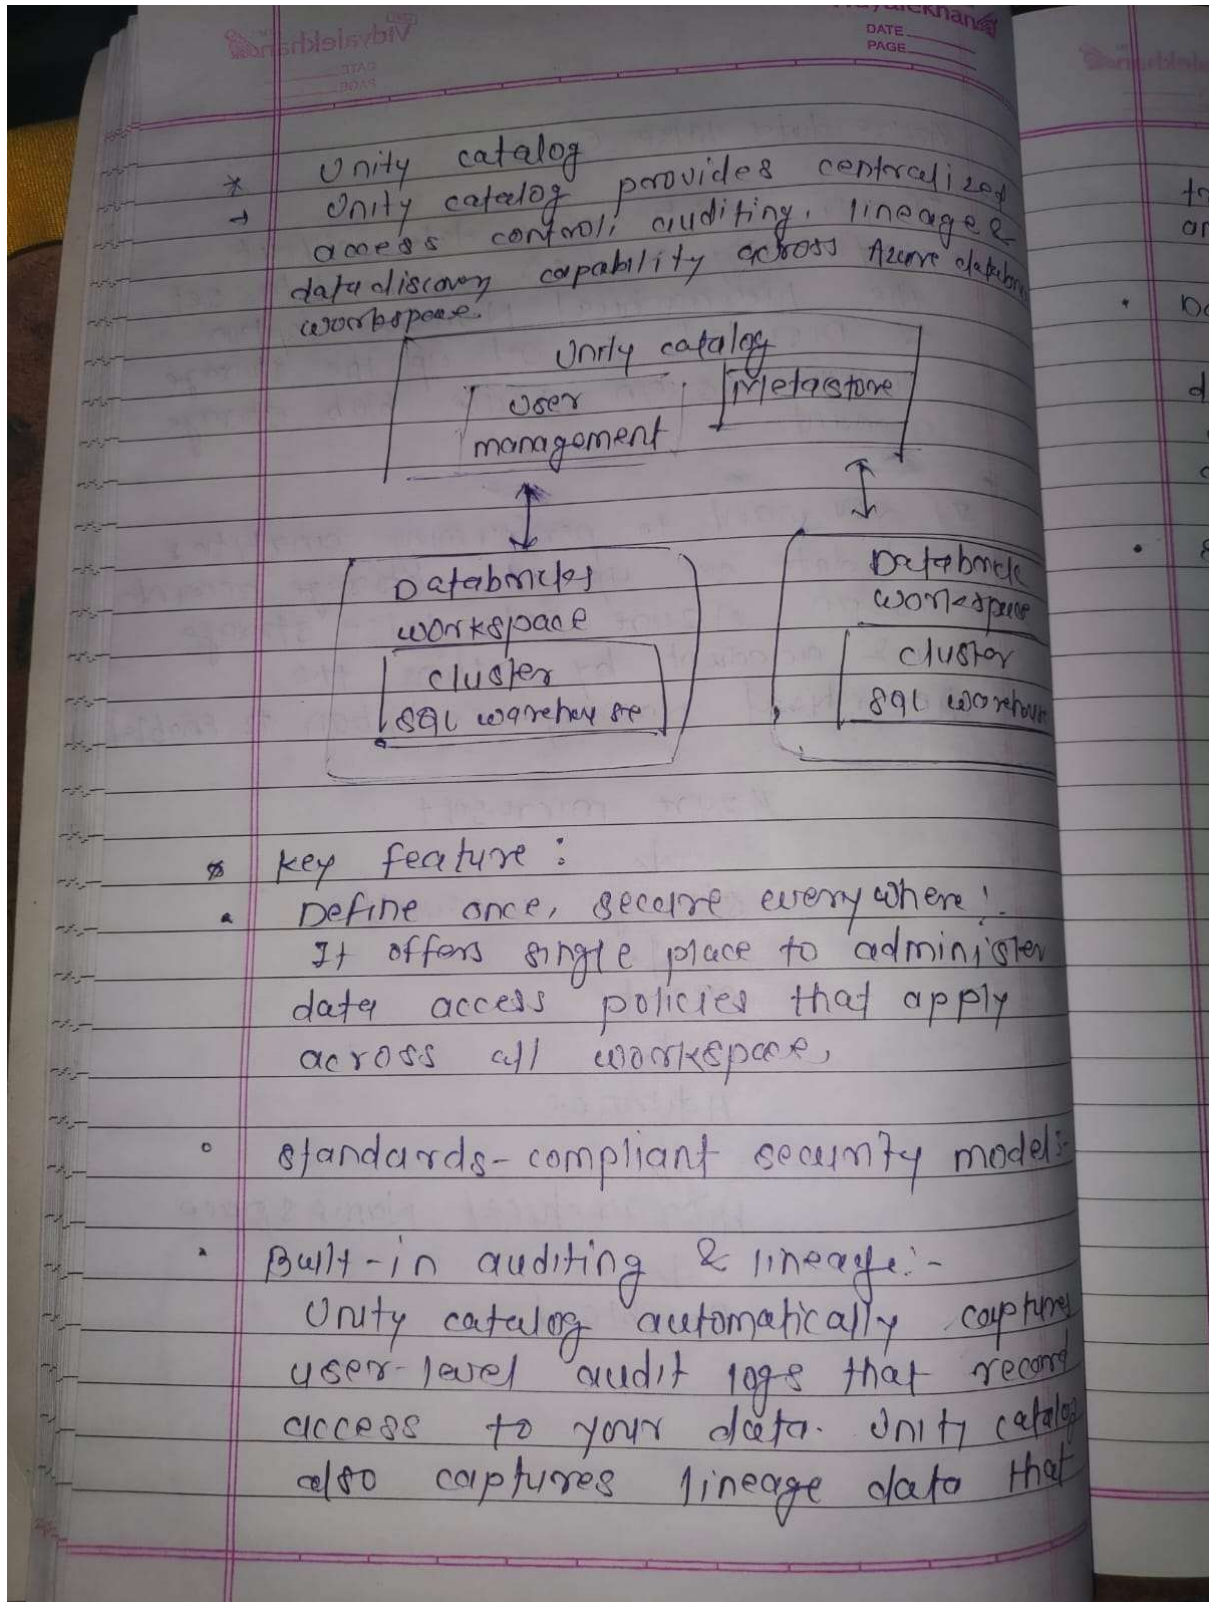 Vidyalekhan
DATE
PAGE
* Unity catalog
→ Unity catalog provides centralized
access control, auditing, lineage &
data discovery capability across Azure databri
workspace.
Unity catalog
User
management
Metastore
Databricks
workspace
cluster
SQL warehouse
Databrick
workspace
cluster
SQL warehouse
* key feature :
• Define once, secure everywhere :
It offers single place to administer
data access policies that apply
across all workspace,
◦ standards-compliant security model:-
• Built-in auditing & lineage:-
Unity catalog automatically captures
user-level audit logs that record
access to your data. Unity catalog
also captures lineage data that